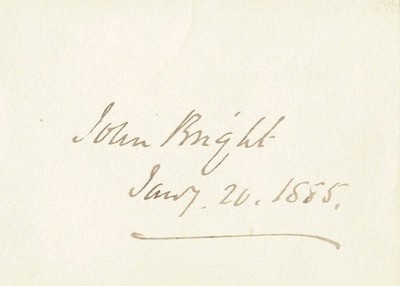 John Bright
Jany. 20. 1885.